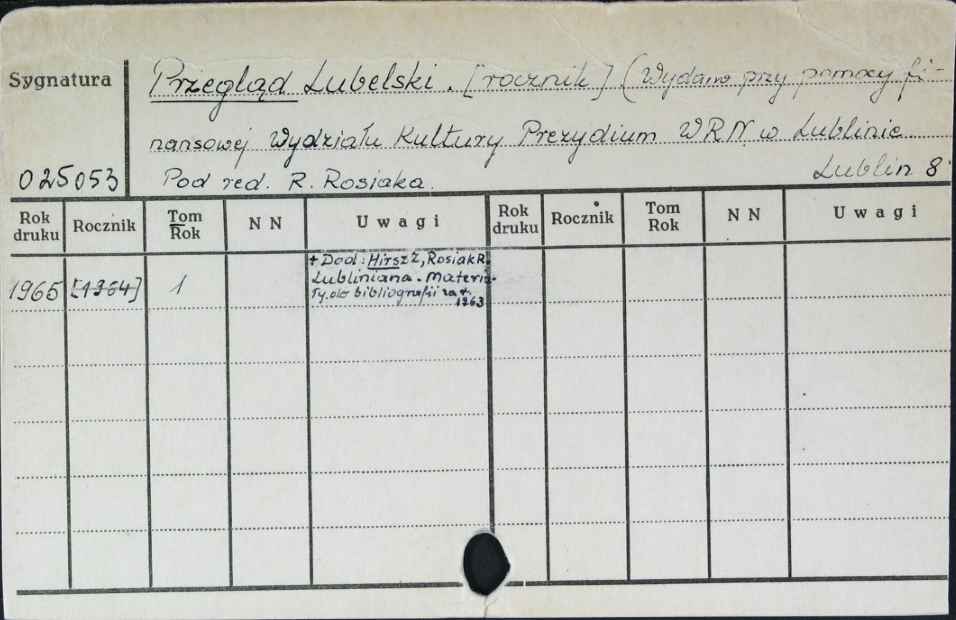 Sygnatura
Przegląd Lubelski. [rocznik] (Wydano przy pomocy fi-
nansowej Wydziału Kultury Prezydium WRN w Lublinie
025053 Pod red. R. Rosiaka. Lublin 8°
Rok druku Rocznik Tom Rok N N Uwagi Rok druku Rocznik Tom Rok N N Uwagi
1965 [1964] 1
+ Dod: Hirsz Z, Rosiak R.
Lubliniana. Materia-
ły do bibliografii za r.
1963